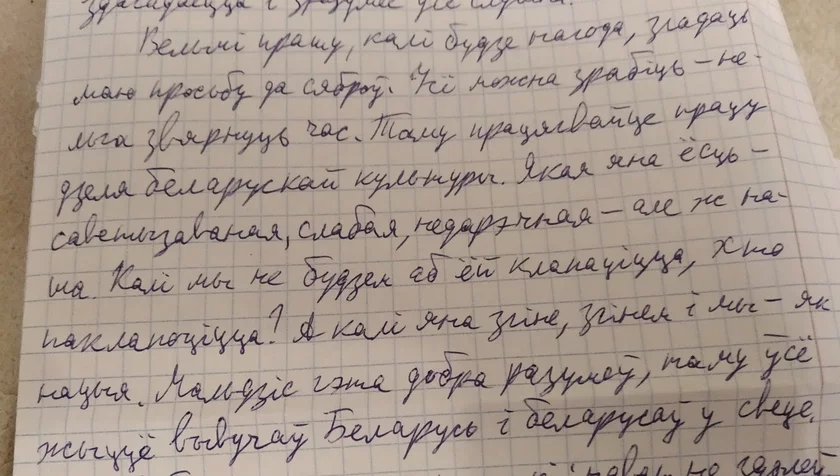 здагадаецца і зразумее усе
Вельмі прашу, калі будзе нагода, згадаць
маю просьбу да сяброў. Усё можна зрабіць – не-
льга звярнуць час. Таму працягвайце працу
дзеля беларускай культуры. Якая яна ёсць –
саветызаваная, слабая, недарэчная – але ж на-
ша. Калі мы не будзем аб ёй клапаціцца, хто
паклапоціцца? А калі яна згіне, згінем і мы – як
нацыя. Мальдзіс гэта добра разумеў, таму ўсё
жыццё вывучаў Беларусь і беларусаў у свеце.